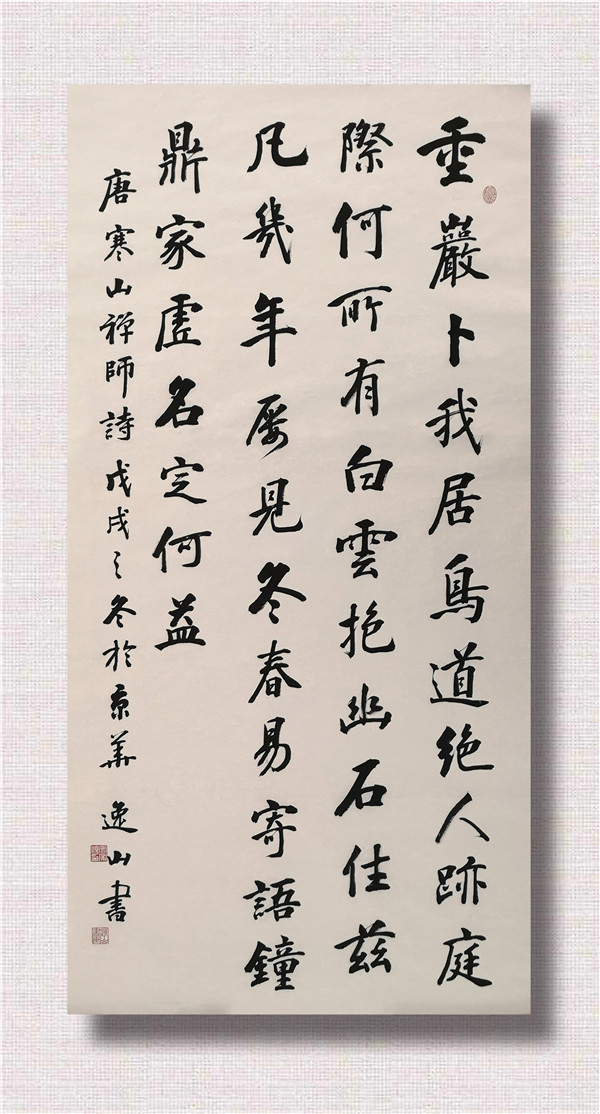 重巖卜我居鳥道絶人跡庭
際何所有白雲抱幽石住茲
凡幾年屢見冬春易寄語鐘
鼎家虛名定何益
唐寒山禪師詩戊戌之冬於京華 逸山書